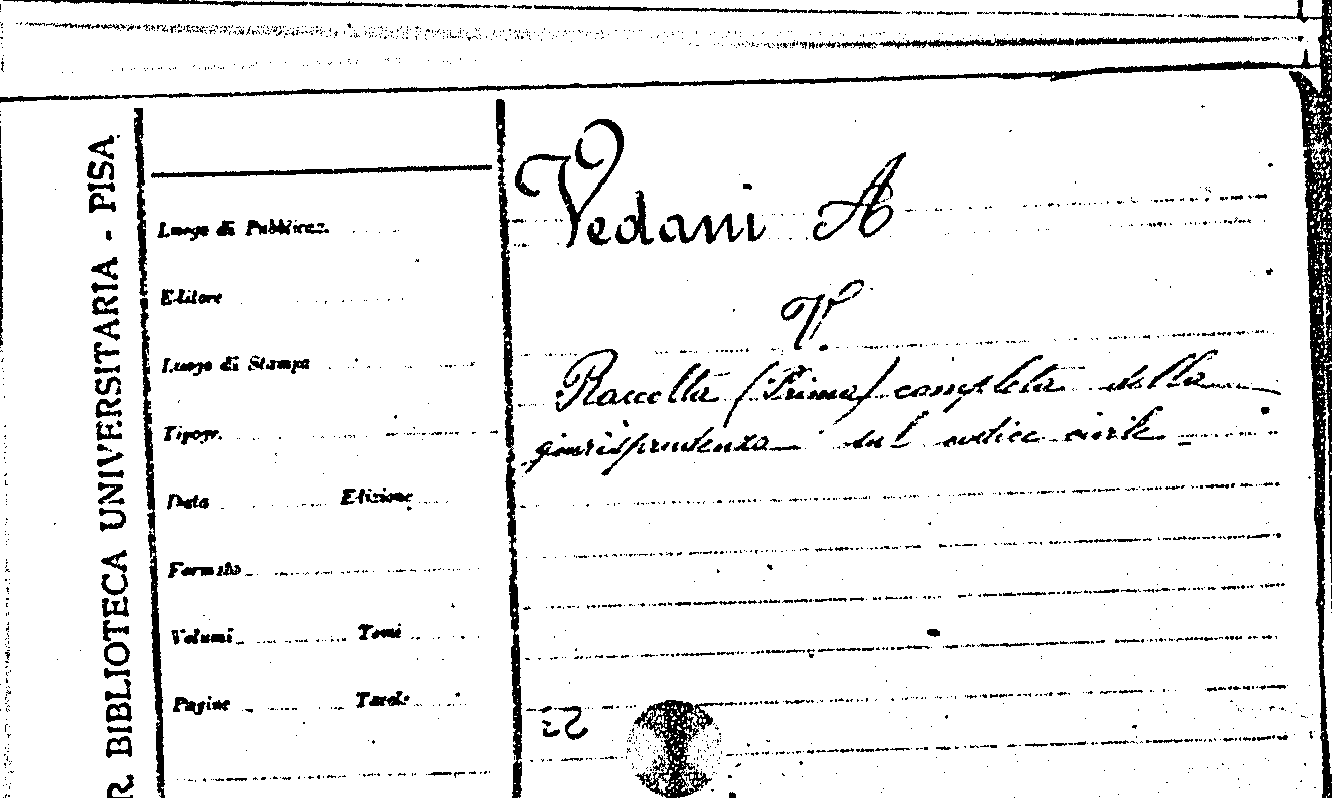 R. BIBLIOTECA UNIVERSITARIA - PISA
Luogo di Pubblicaz.
Editore
Luogo di Stampa
Tipogr.
Data Edizione
Formato
Volumi Tomi
Pagine Tavole
Vedani A
V.
Raccolta (Prima) completa della
giurisprudenza sul codice civile =